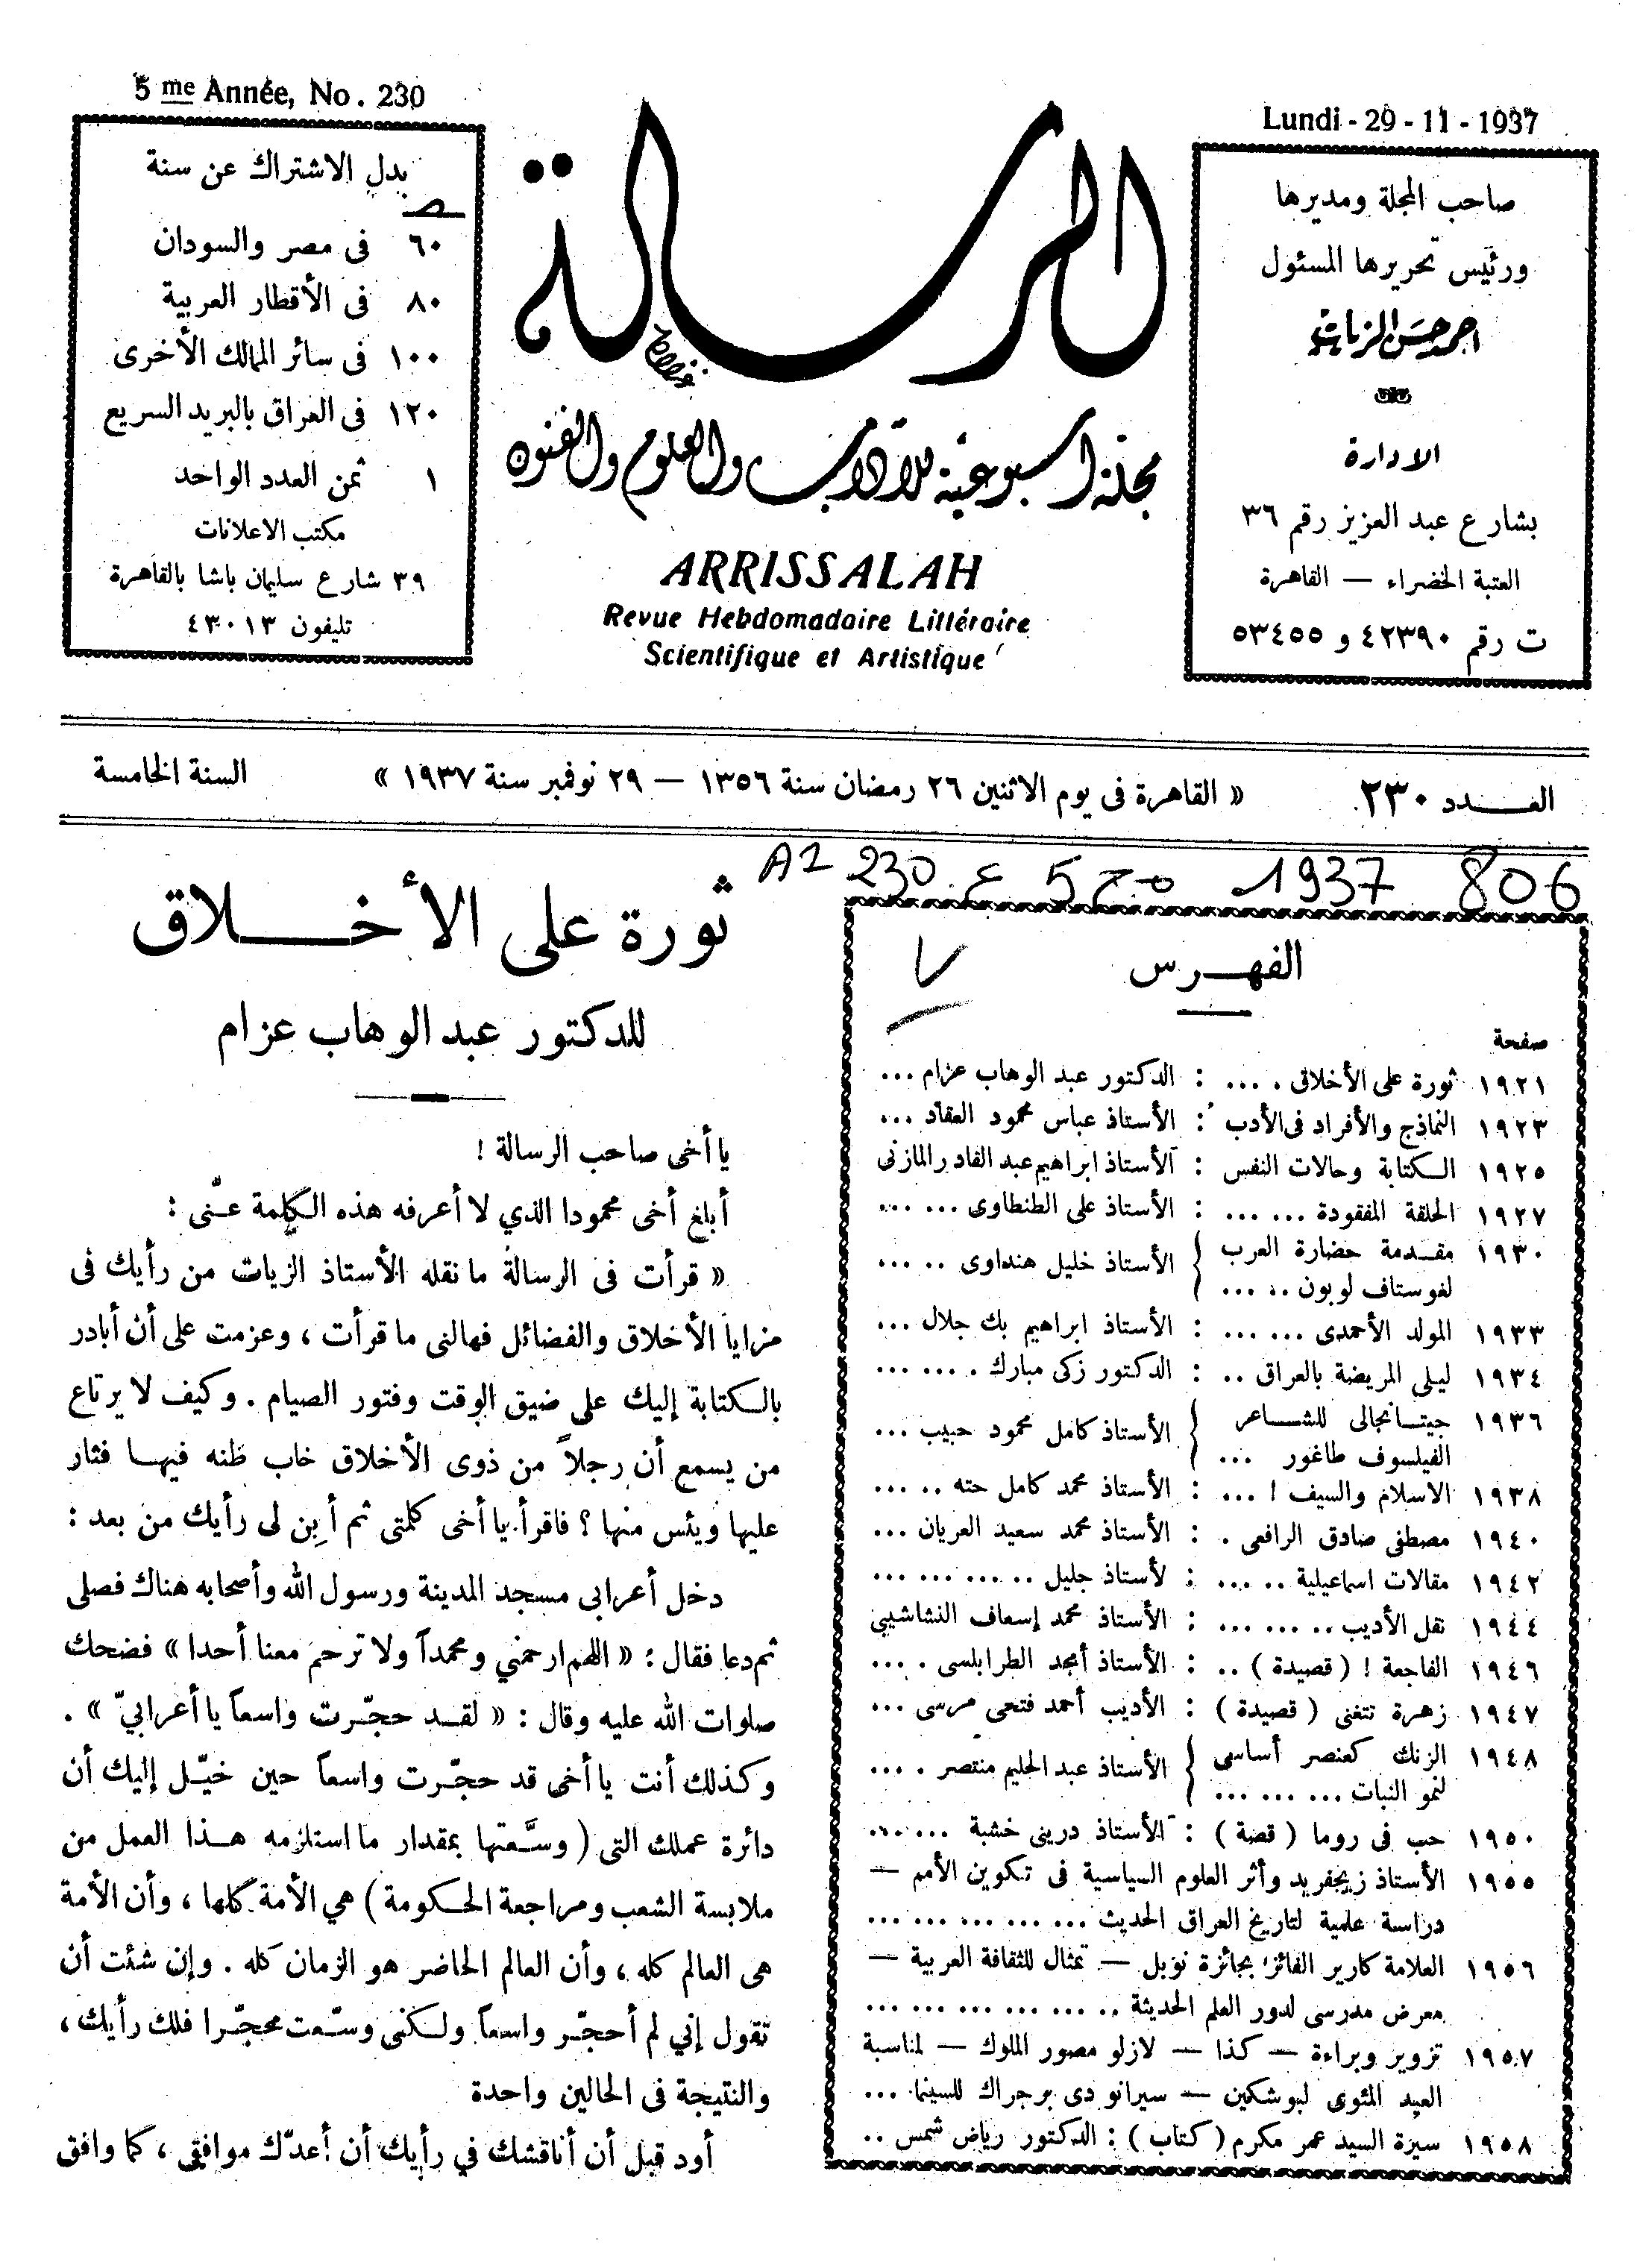 5 me Année, No. 230
Lundi - 29 - 11 - 1937
صاحب المجلة ومديرها
ورئيس تحريرها المسئول
احمد حسن الزيات
الادارة
بشارع عبد العزيز رقم ٣٦
العتبة الخضراء — القاهرة
ت رقم ٤٢٣٩٠ و ٥٣٤٥٥
الرسالة
مجلة أسبوعية للآداب والعلوم والفنون
ARRISSALAH
Revue Hebdomadaire Littéraire
Scientifique et Artistique
بدل الاشتراك عن سنة
ص
٦٠ فى مصر والسودان
٨٠ فى الأقطار العربية
١٠٠ فى سائر الممالك الأخرى
١٢٠ فى العراق بالبريد السريع
١ ثمن العدد الواحد
مكتب الاعلانات
٣٩ شارع سليمان باشا بالقاهرة
تليفون ٤٣٠١٣
العدد ٢٣٠
« القاهرة فى يوم الاثنين ٢٦ رمضان سنة ١٣٥٦ — ٢٩ نوفمبر سنة ١٩٣٧ »
السنة الخامسة
A2 230 ع 5 ج 1937 806
الفهرس
صفحة
١٩٢١ ثورة على الأخلاق . ... : الدكتور عبد الوهاب عزام ...
١٩٢٣ النماذج والأفراد فى الأدب : الأستاذ عباس محمود العقاد ...
١٩٢٥ الكتابة وحالات النفس : الأستاذ ابراهيم عبد القادر المازنى
١٩٢٧ الحلقة المفقودة ... ... : الأستاذ على الطنطاوى ... ...
١٩٣٠ مقدمة حضارة العرب
لغوستاف لوبون .. ... } الأستاذ خليل هنداوى .. ...
١٩٣٣ المولد الأحمدى ... ... : الأستاذ ابراهيم بك جلال ...
١٩٣٤ ليلى المريضة بالعراق .. : الدكتور زكى مبارك . ... ...
١٩٣٦ جيتانجالى للشاعر
الفيلسوف طاغور ... } الأستاذ كامل محمود حبيب ...
١٩٣٨ الاسلام والسيف ! ... : الأستاذ محمد كامل حته .. ...
١٩٤٠ مصطفى صادق الرافعى . : الأستاذ محمد سعيد العريان ...
١٩٤٢ مقالات اسماعيلية .. ... : لأستاذ جليل .. ... ... ...
١٩٤٤ نقل الأديب .. ... ... : الأستاذ محمد إسعاف النشاشيبى
١٩٤٦ الفاجعة ! ( قصيدة ) .. : الأستاذ أمجد الطرابلسى . ...
١٩٤٧ زهرة تتغنى ( قصيدة ) : الأديب أحمد فتحى مرسى ...
١٩٤٨ الزنك كعنصر أساسى
لنمو النبات ... ... ... } الأستاذ عبد الحليم منتصر . ...
١٩٥٠ حب فى روما ( قصة ) : الأستاذ درينى خشبة ... ...
١٩٥٥ الأستاذ زيجفريد وأثر العلوم السياسية فى تكوين الأمم —
دراسة علمية لتاريخ العراق الحديث ... ... ... ... ...
١٩٥٦ العلامة كارير الفائز بجائزة نوبل — تمثال للثقافة العربية —
معرض مدرسى لدور العلم الحديثة .. ... ... ... ... ...
١٩٥٧ تزوير وبراءة — كذا — لازلو مصور الملوك — لمناسبة
العيد المئوى لبوشكين — سيرانو دى برجراك للسينما ...
١٩٥٨ سيرة السيد عمر مكرم ( كتاب ) : الدكتور رياض شمس ..
ثورة على الأخلاق
للدكتور عبد الوهاب عزام
يا أخى صاحب الرسالة !
أبلغ أخى محمودا الذي لا أعرفه هذه الكلمة عنّى :
« قرأت فى الرسالة ما نقله الأستاذ الزيات من رأيك فى
مزايا الأخلاق والفضائل فهالنى ما قرأت ، وعزمت على أن أبادر
بالكتابة إليك على ضيق الوقت وفتور الصيام . وكيف لا يرتاع
من يسمع أن رجلاً من ذوى الأخلاق خاب ظنه فيها فثار
عليها ويئس منها ؟ فاقرأ يا أخى كلمتى ثم أبِن لى رأيك من بعد :
دخل أعرابى مسجد المدينة ورسول الله وأصحابه هناك فصلى
ثم دعا فقال : « اللهم ارحمني ومحمداً ولا ترحم معنا أحدا » فضحك
صلوات الله عليه وقال : « لقد حجّرت واسعاً يا أعرابيّ » .
وكذلك أنت يا أخى قد حجّرت واسعاً حين خيّل إليك أن
دائرة عملك التى ( وسَّعتها بمقدار ما استلزمه هذا العمل من
ملابسة الشعب ومراجعة الحكومة ) هي الأمة كلها ، وأن الأمة
هى العالم كله ، وأن العالم الحاضر هو الزمان كله . وإن شئت أن
تقول إني لم أحجّر واسعاً ولكنى وسّعت محجّرا فلك رأيك ،
والنتيجة فى الحالين واحدة
أود قبل أن أناقشك في رأيك أن أعدّك موافقى ، كما وافق